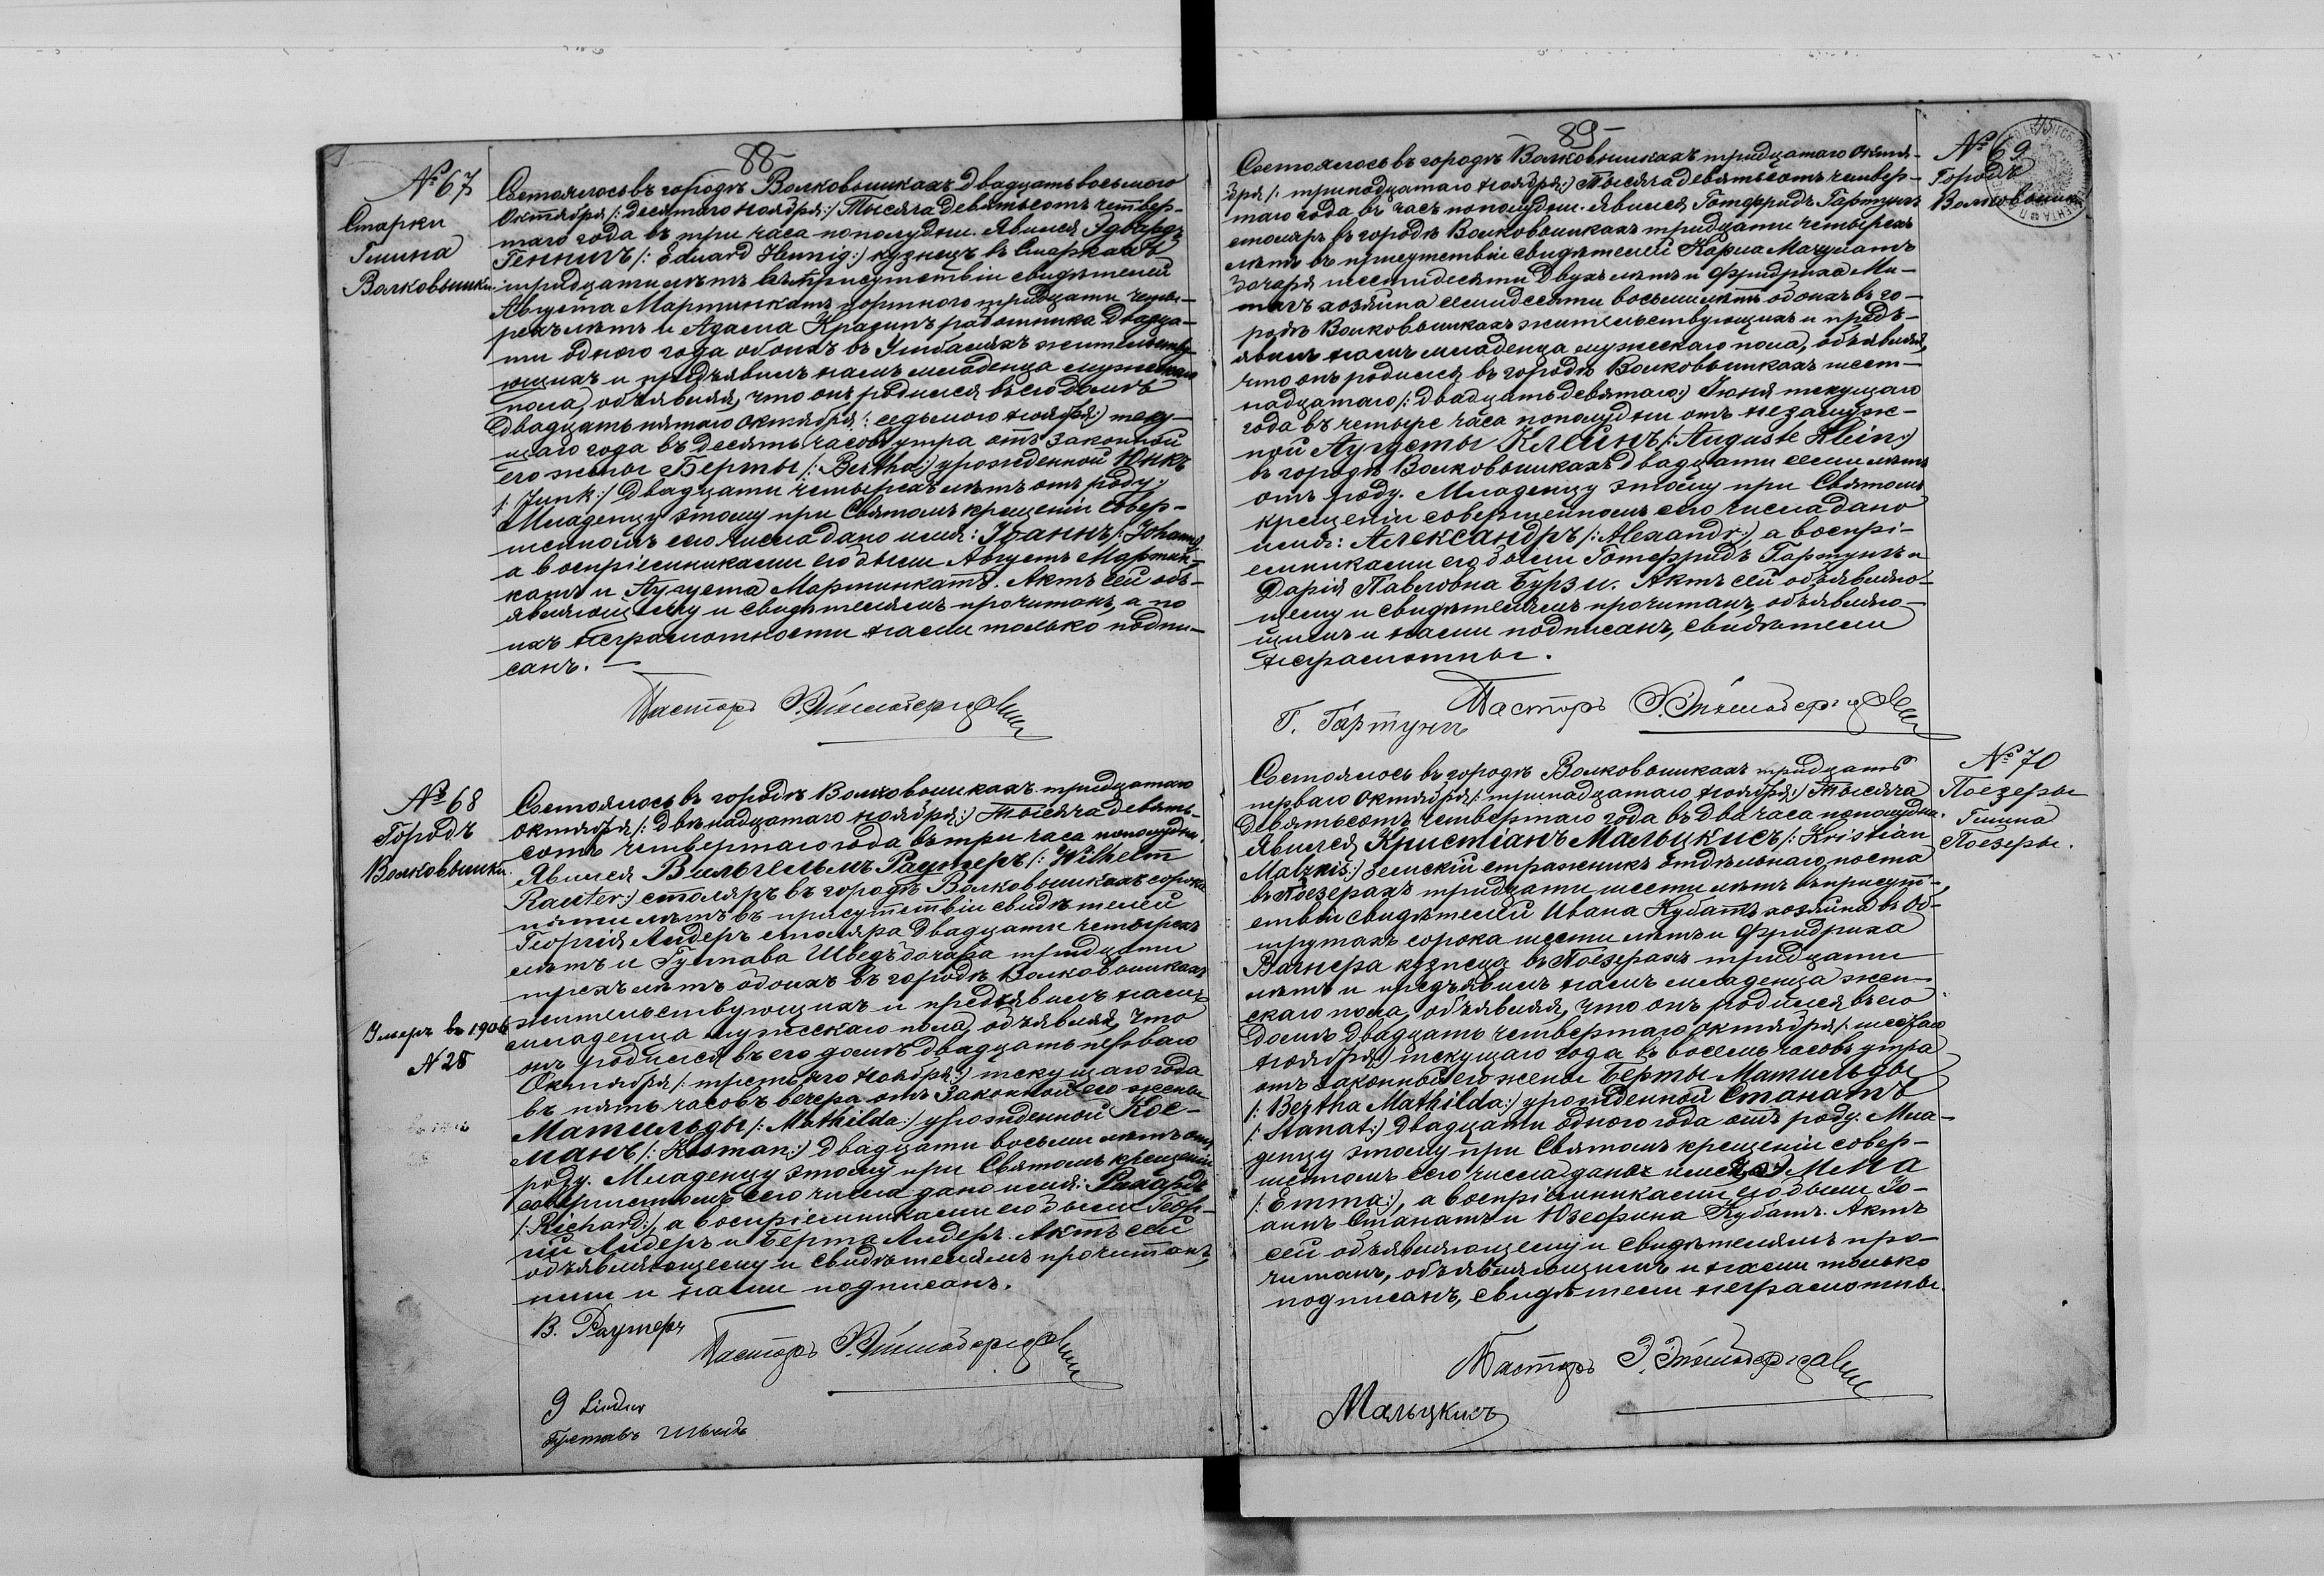 88
№ 67
Старки
Гмина
Волковышки.
Состоялось въ городѣ Волковышкахъ двадцать восьмого
Октября /: десятаго Ноября:/ Тысяча девятьсотъ четвер-
таго года въ три часа пополудни. Явился Эдвардъ
Геннигъ /: Eduard Hennig:/ кузнецъ въ Старкахъ
тридцати лѣтъ въ присутствіи свидѣтелей
Августа Мартинкатъ портного тридцати четы-
рехъ лѣтъ и Адама работника двадца-
ти одного года обоихъ въ жительству-
ющихъ и предъявилъ намъ младенца мужескаго
пола, объявляя, что онъ родился въ его домѣ
двадцать пятаго Октября /: седьмого Ноября:/ теку-
щаго года въ десять часовъ утра отъ законной
его жены Берты /: Bertha:/ урожденной Юнкъ
/: Junk:/ двадцати четырехъ лѣтъ отъ роду.
Младенцу этому при Святомъ крещеніи совер-
шенномъ сего числа дано имя: Іоаннъ /: Johann:/
а воспріемниками его были Августъ Мартин-
катъ и Августа Мартинкатъ. Актъ сей объ-
являющему и свидѣтелямъ прочитанъ, а по
ихъ неграмотности нами только подпи-
санъ. —
Пасторъ
№ 68
Городъ
Волковышки.
Умеръ въ 1906
N 28
Состоялось въ городѣ Волковышкахъ тридцатаго
Октября /: двѣнадцатаго Ноября:/ Тысяча девять-
сотъ четвертаго года въ три часа пополудни.
Явился Вильгельмъ Раутеръ /: Wilhelm
Rauter:/ столяръ въ городѣ Волковышкахъ сорока
пяти лѣтъ въ присутствіи свидѣтелей
Георгія Лидеръ столяра двадцати четырехъ
лѣтъ и Густава Шведъ бочара тридцати
трехъ лѣтъ обоихъ въ городѣ Волковышкахъ
жительствующихъ и предъявилъ намъ
младенца мужескаго пола, объявляя, что
онъ родился въ его домѣ двадцать перваго
Октября /: третьяго Ноября:/ текущаго года
въ пять часовъ вечера отъ Законной его жены
Матильды /: Mathilda:/ урожденной Кос-
манъ /: Kosman:/ двадцати восьми лѣтъ отъ
роду. Младенцу этому при Святомъ крещеніи
совершенномъ сего числа дано имя: Рихардъ
/: Richard:/, а воспріемниками его были Геор-
гій Лидеръ и Берта Лидеръ. Актъ сей
объявляющему и свидѣтелямъ прочитанъ,
ими и нами подписанъ.
В. Раутеръ
Пасторъ
Густавъ Шведъ
89
№ 69
Городъ
Волковышки
Состоялось въ городѣ Волковышкахъ тридцатаго Октя-
бря /: тринадцатаго Ноября:/ Тысяча девятьсотъ четвер-
таго года, въ часъ пополудни. Явился Готфридъ Гартунгъ
столяръ въ городѣ Волковышкахъ тридцати четырехъ
лѣтъ въ присутствіи свидѣтелей Карла
бочаря шестидесяти двухъ лѣтъ и Фридриха Ми-
хозяина семидесяти восьми лѣтъ обоихъ въ го-
родѣ Волковышкахъ жительствующихъ и предъ-
явилъ намъ младенца мужескаго пола, объявляя,
что онъ родился въ городѣ Волковышкахъ шест-
надцатаго /: двадцать девятаго:/ Іюня текущаго
года въ четыре часа пополудни отъ незамуж-
ной Аугусты Клейнъ /: Auguste Klein:/
въ городѣ Волковышкахъ двадцати семи лѣтъ
отъ роду. Младенцу этому при Святомъ
крещеніи совершенномъ сего числа дано
имя: Александръ /: Alexandr:/, а воспрі-
емниками его были Готфридъ Гартунгъ и
Дарія Павловна Бурзи. Актъ сей объявляю-
щему и свидѣтелямъ прочитанъ, объявляю-
щимъ и нами подписанъ, свидѣтели
неграмотны.
Г. Гартунгъ
Пасторъ
№ 70
Поезеры
Гмина
Поезеры.
Состоялось въ городѣ Волковышкахъ тридцать
перваго Октября /: тринадцатаго Ноября:/ Тысяча
девятьсотъ четвертаго года въ два часа пополудни.
Явился Кристіанъ Мальцкисъ /: Kristian
Malzkis:/ земскій стражникъ отдѣльнаго поста
въ Поезерахъ тридцати шести лѣтъ въ присут-
ствіи свидѣтелей Ивана Кубатъ хозяина въ Об-
шрутахъ сорока шести лѣтъ и Фридриха
Вагнера кузнеца въ Поезерахъ тридцати
лѣтъ и предъявилъ намъ младенца жен-
скаго пола, объявляя, что онъ родился въ его
домѣ двадцать четвертаго Октября /: шестаго
Ноября:/ текущаго года въ восемь часовъ утра
отъ законной его жены Берты-Матильды
/: Bertha Mathilda:/ урожденной Станатъ
/: Stanat:/ двадцати одного года отъ роду. Мла-
денцу этому при Святомъ крещеніи совер-
шенномъ сего числа дано имя: Эмма
/: Emma:/, а воспріемниками его были Іо-
аннъ Станатъ и Юзефина Кубатъ. Актъ
сей объявляющему и свидѣтелямъ про-
читанъ, объявляющимъ и нами только
подписанъ, свидѣтели неграмотны.
Пасторъ
Мальцкисъ